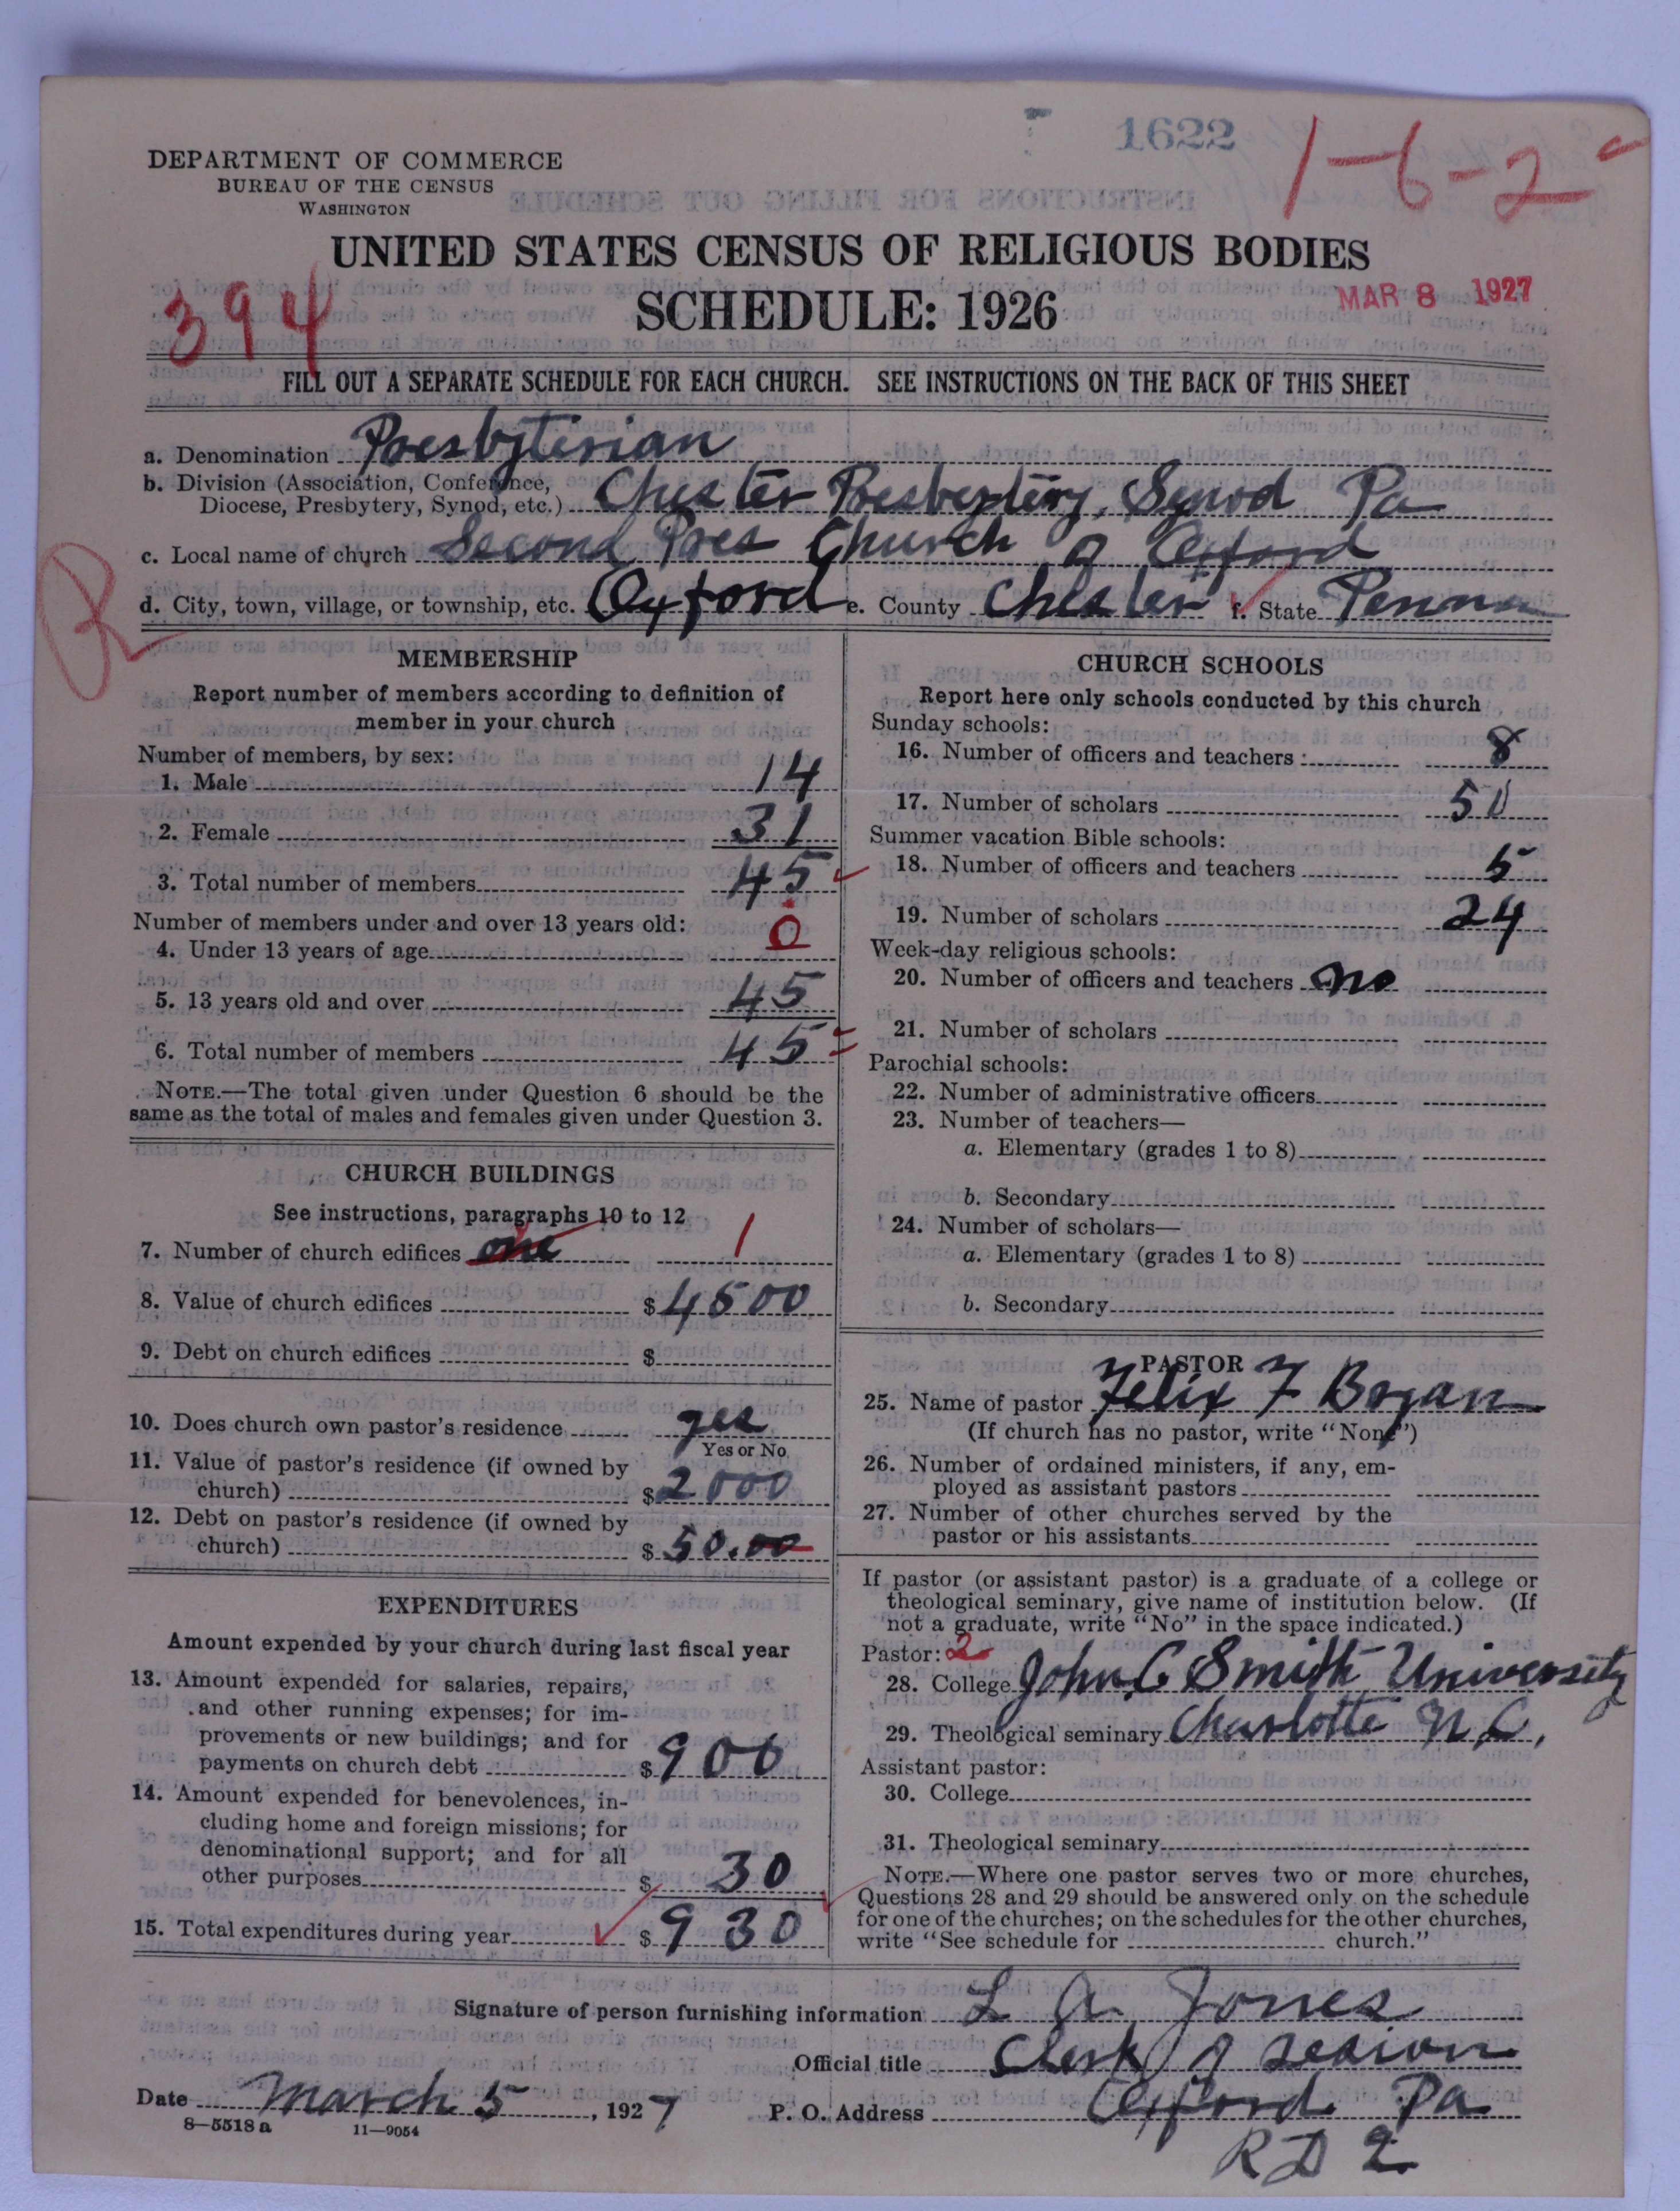 1622
1-6-2
DEPARTMENT OF COMMERCE
BUREAU OF THE CENSUS
WASHINGTON
UNITED STATES CENSUS OF RELIGIOUS BODIES
394
SCHEDULE: 1926
MAR 8 1927
FILL OUT A SEPARATE SCHEDULE FOR EACH CHURCH. SEE INSTRUCTIONS ON THE BACK OF THIS SHEET
a. Denomination Presbyterian
b. Division (Association, Conference,
Diocese, Presbytery, Synod, etc.) Chester Presbeytery, Synod Pa
c. Local name of church Second Pres Church of Oxford
R
d. City, town, village, or township, etc. Oxford e. County Chester f. State Penna
MEMBERSHIP
Report number of members according to definition of
member in your church
Number of members, by sex:
1. Male 14
2. Female 31
3. Total number of members 45
Number of members under and over 13 years old:
4. Under 13 years of age 0
5. 13 years old and over 45
6. Total number of members 45
NOTE.—The total given under Question 6 should be the
same as the total of males and females given under Question 3.
CHURCH BUILDINGS
See instructions, paragraphs 10 to 12
7. Number of church edifices one 1
8. Value of church edifices $4500
9. Debt on church edifices $
10. Does church own pastor's residence yes
Yes or No
11. Value of pastor's residence (if owned by
church) $2000
12. Debt on pastor's residence (if owned by
church) $50.00
EXPENDITURES
Amount expended by your church during last fiscal year
13. Amount expended for salaries, repairs,
and other running expenses; for im-
provements or new buildings; and for
payments on church debt $900
14. Amount expended for benevolences, in-
cluding home and foreign missions; for
denominational support; and for all
other purposes $30
15. Total expenditures during year $930
CHURCH SCHOOLS
Report here only schools conducted by this church
Sunday schools:
16. Number of officers and teachers: 8
17. Number of scholars 50
Summer vacation Bible schools:
18. Number of officers and teachers 5
19. Number of scholars 24
Week-day religious schools:
20. Number of officers and teachers no
21. Number of scholars
Parochial schools:
22. Number of administrative officers
23. Number of teachers—
a. Elementary (grades 1 to 8)
b. Secondary
24. Number of scholars—
a. Elementary (grades 1 to 8)
b. Secondary
PASTOR
25. Name of pastor Felix F Bogan
(If church has no pastor, write "None")
26. Number of ordained ministers, if any, em-
ployed as assistant pastors
27. Number of other churches served by the
pastor or his assistants
If pastor (or assistant pastor) is a graduate of a college or
theological seminary, give name of institution below. (If
not a graduate, write "No" in the space indicated.)
Pastor: 2
28. College John C Smith University
29. Theological seminary Charlotte N.C,
Assistant pastor:
30. College
31. Theological seminary
NOTE.—Where one pastor serves two or more churches,
Questions 28 and 29 should be answered only on the schedule
for one of the churches; on the schedules for the other churches,
write "See schedule for church."
Signature of person furnishing information L A. Jones
Official title Clerk of session
Date March 5, 1927 P. O. Address Oxford Pa
8-5518 a 11-9054
RD 2